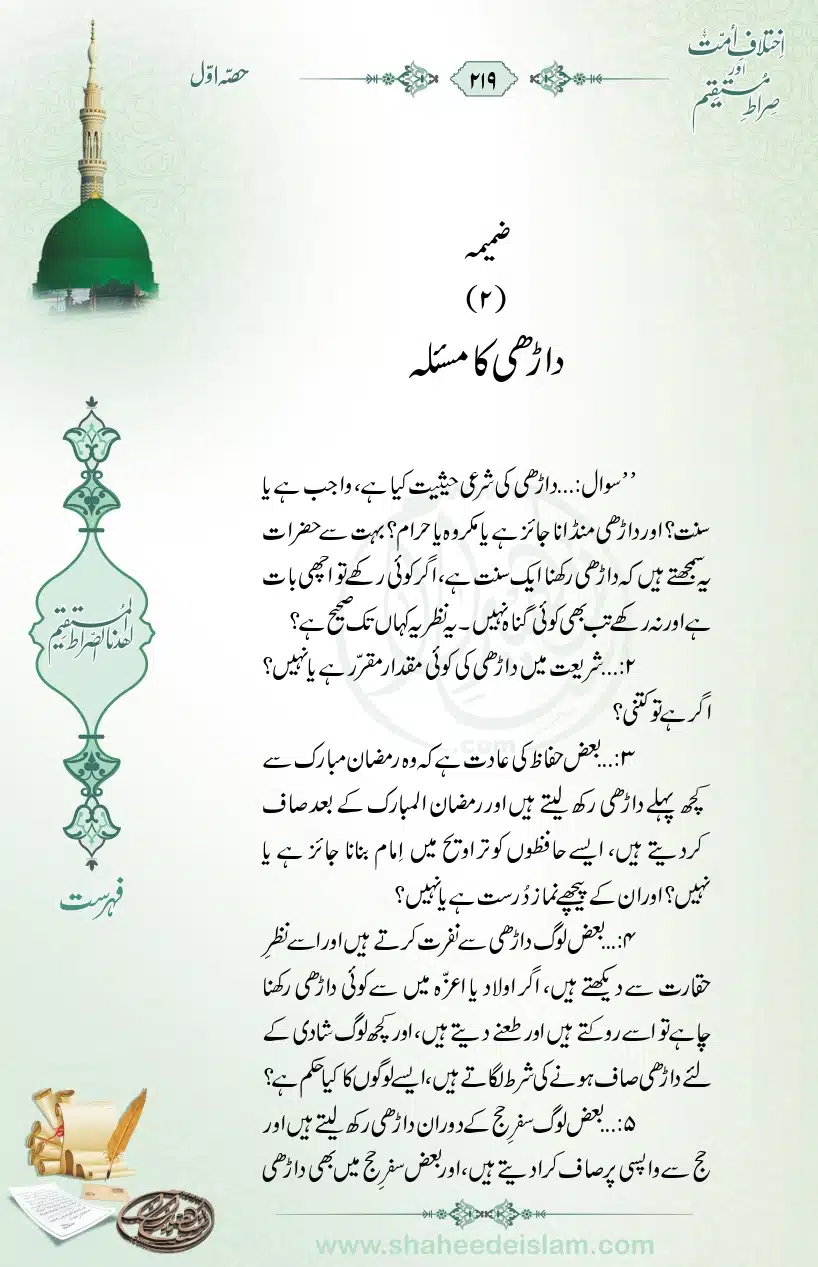 اِختلافِ اُمّت
اور
صِراطِ مُستقیم
۲۱۹
حصّہ اوّل
ضمیمہ
(۲)
داڑھی کا مسئلہ
’’سوال:...داڑھی کی شرعی حیثیت کیا ہے، واجب ہے یا
سنت؟ اور داڑھی منڈانا جائز ہے یا مکروہ یا حرام؟ بہت سے حضرات
یہ سمجھتے ہیں کہ داڑھی رکھنا ایک سنت ہے، اگر کوئی رکھے تو اچھی بات
ہے اور نہ رکھے تب بھی کوئی گناہ نہیں۔ یہ نظریہ کہاں تک صحیح ہے؟
۲:...شریعت میں داڑھی کی کوئی مقدار مقرّر ہے یا نہیں؟
اگر ہے تو کتنی؟
۳:...بعض حفاظ کی عادت ہے کہ وہ رمضان مبارک سے
کچھ پہلے داڑھی رکھ لیتے ہیں اور رمضان المبارک کے بعد صاف
کردیتے ہیں، ایسے حافظوں کو تراویح میں اِمام بنانا جائز ہے یا
نہیں؟ اور ان کے پیچھے نماز دُرست ہے یا نہیں؟
۴:...بعض لوگ داڑھی سے نفرت کرتے ہیں اور اسے نظرِ
حقارت سے دیکھتے ہیں، اگر اولاد یا اعزّہ میں سے کوئی داڑھی رکھنا
چاہے تو اسے روکتے ہیں اور طعنے دیتے ہیں، اور کچھ لوگ شادی کے
لئے داڑھی صاف ہونے کی شرط لگاتے ہیں، ایسے لوگوں کا کیا حکم ہے؟
۵:...بعض لوگ سفرِ حج کے دوران داڑھی رکھ لیتے ہیں اور
حج سے واپسی پر صاف کرادیتے ہیں، اور بعض سفرِ حج میں بھی داڑھی
اهدنا الصّراط المُستقیم
فہرست
.com
www.shaheedeislam.com